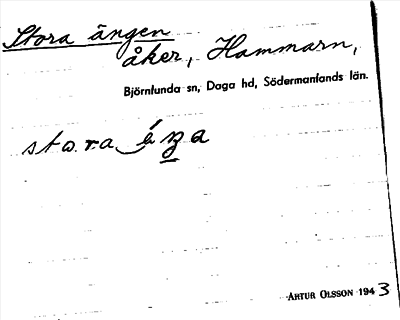 Stora ängen
åker, Hammarn,
Björnlunda sn, Daga hd, Södermanlands län.
ARTUR OLSSON 1943